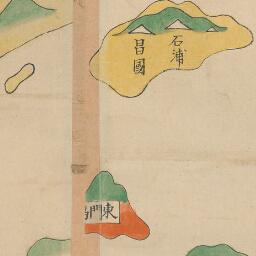 石浦
昌國
東門